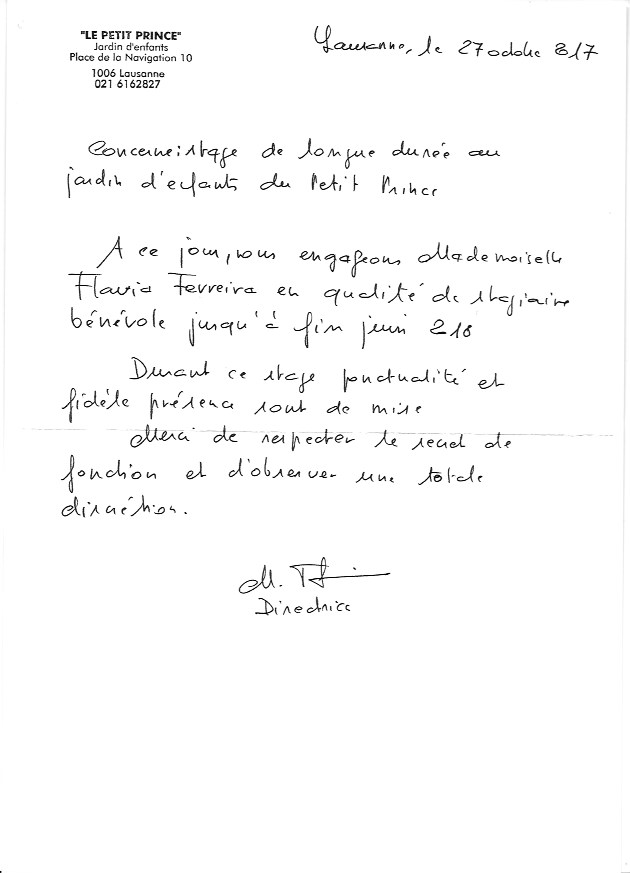 "LE PETIT PRINCE"
Jardin d'enfants
Place de la Navigation 10
1006 Lausanne
021 6162827
Lausanne, le 27 octobre 2017
Concerne: stage de longue durée au
jardin d'enfants du Petit Prince
A ce jour, nous engageons Mademoiselle
Flavia Ferreira en qualité de stagiaire
bénévole jusqu'à fin juin 218
Durant ce stage ponctualité et
fidèle présence sont de mise
Merci de respecter le secret de
fonction et d'observer une totale
discrétion.
M.
Directrice